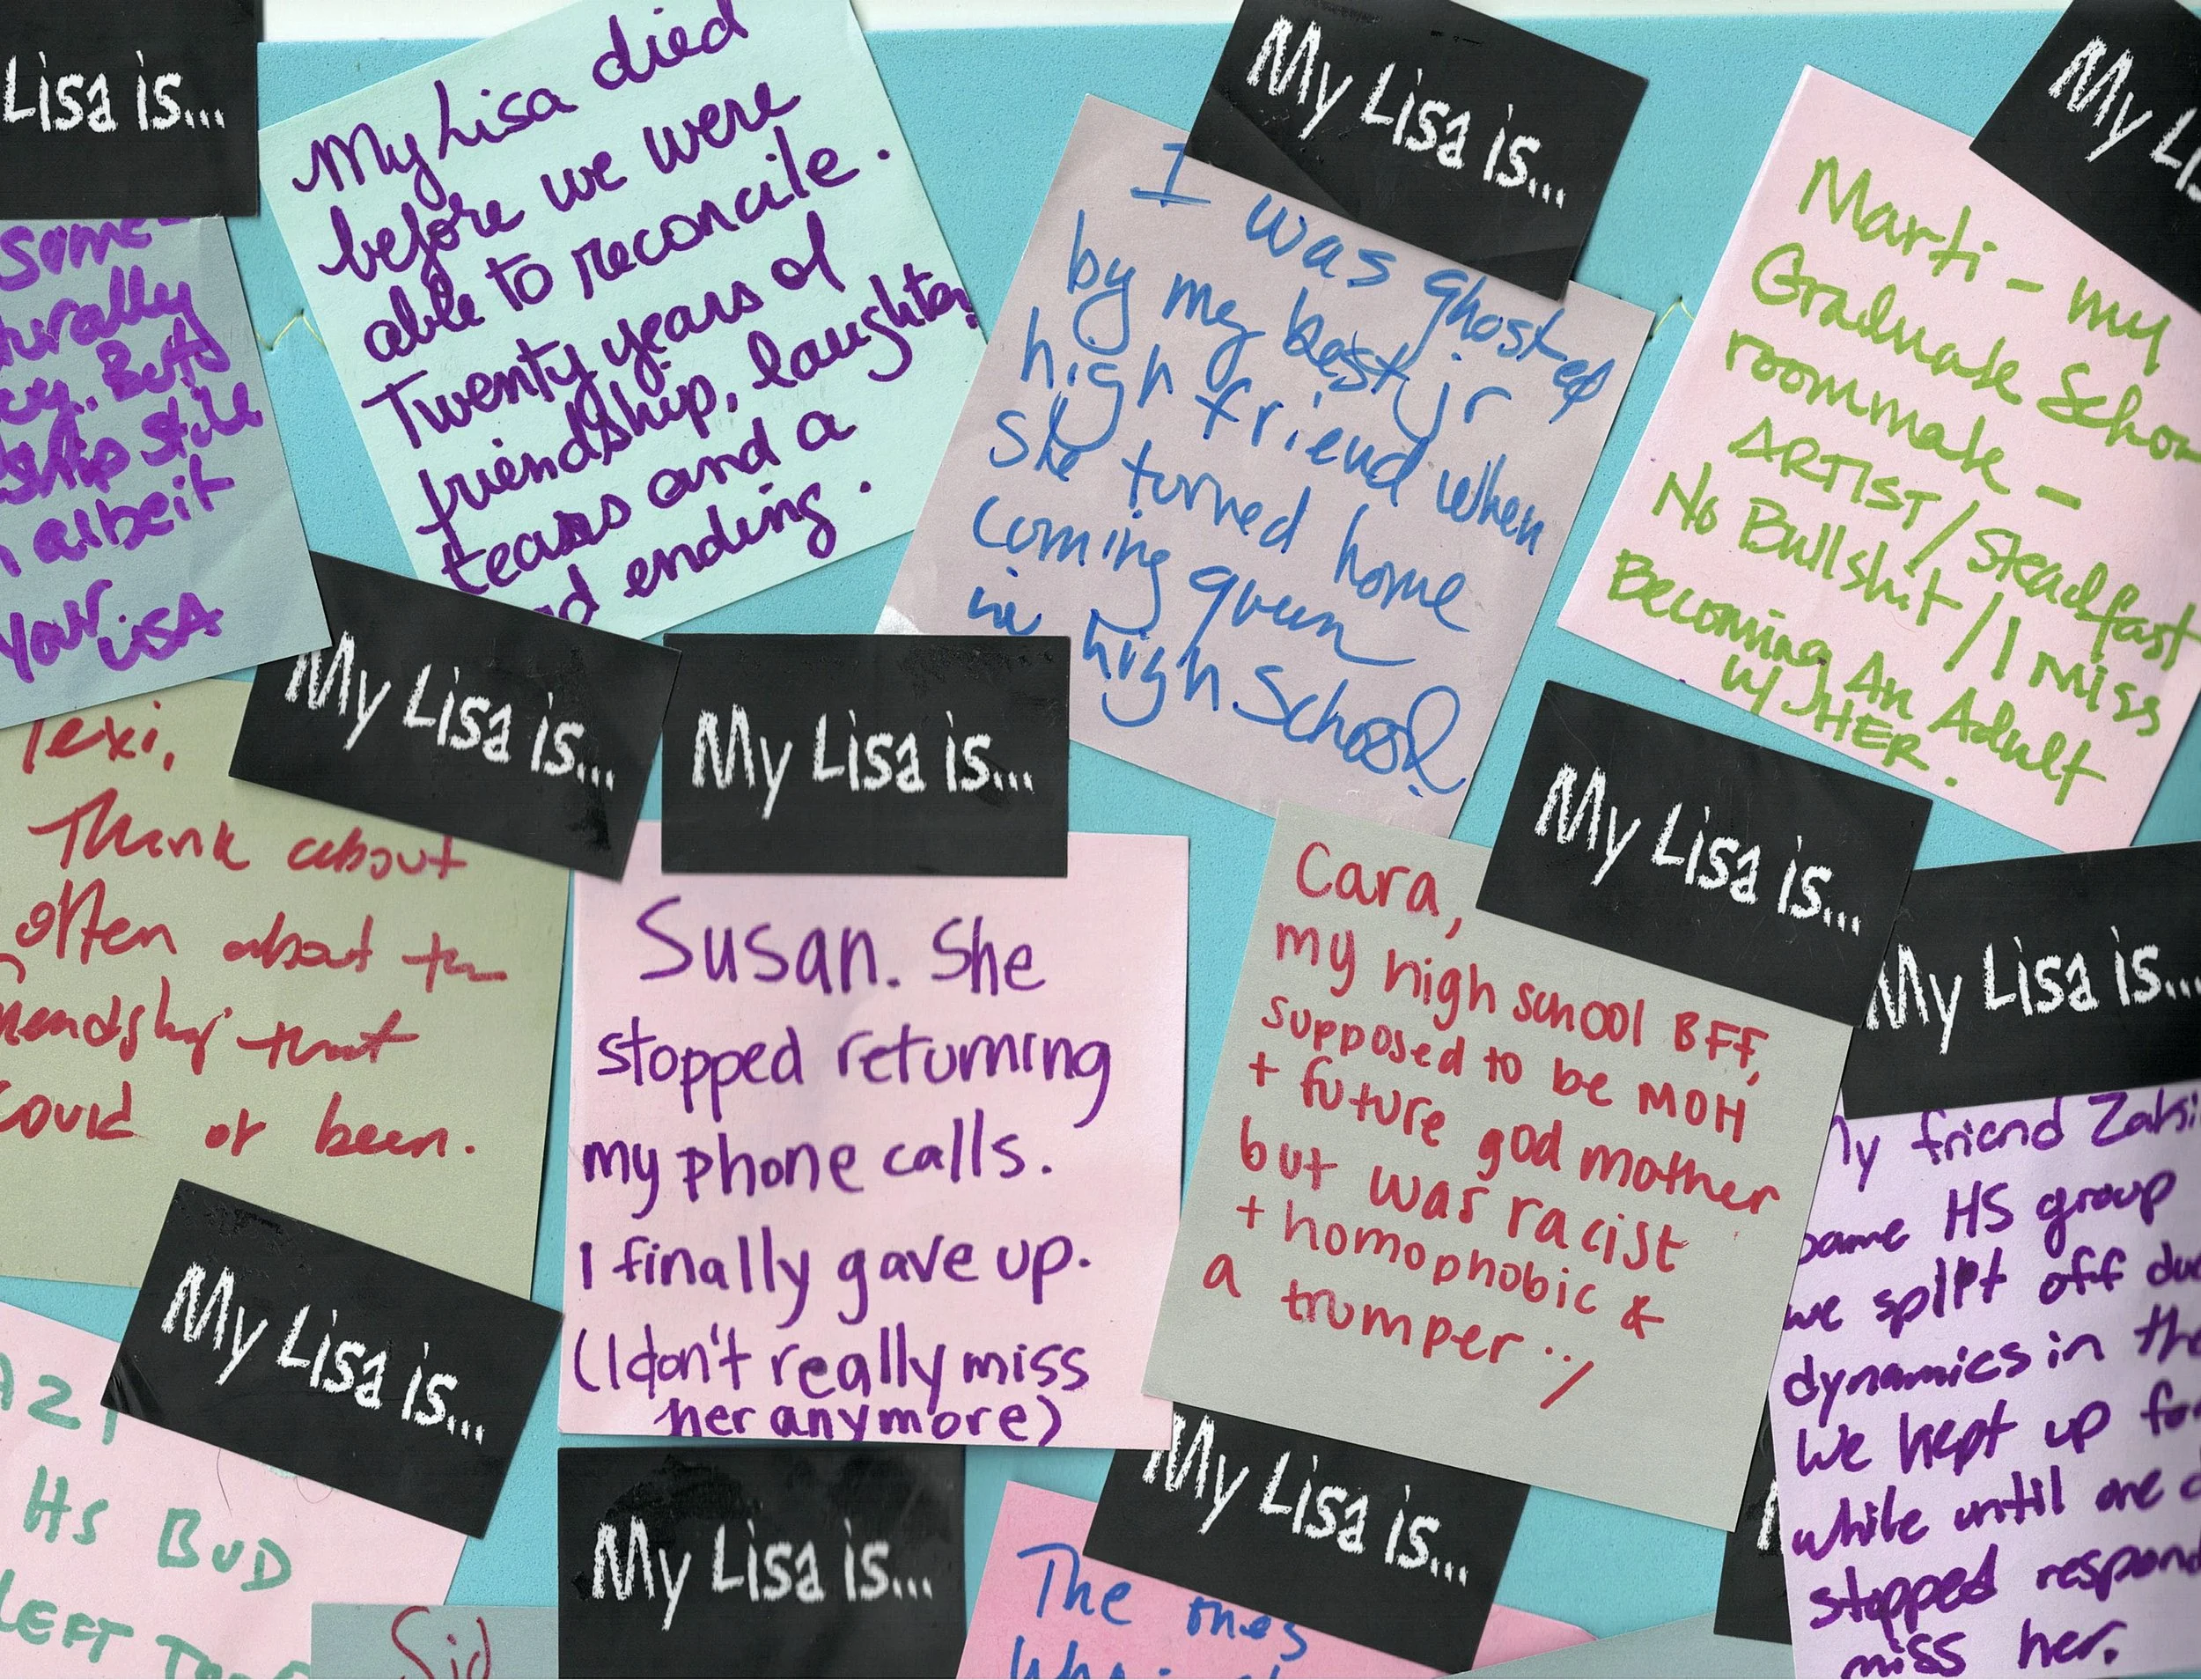 Lisa is...
some-
turally
But
ship still
albeit
your
LISA
My Lisa died
before we were
able to reconcile.
Twenty years of
friendship, laughter,
tears and a
ending.
My Lisa is...
I was ghosted
by my best jr
high friend when
she turned home
coming queen
in high school
My Lis
Marti - my
Graduate School
roommate -
ARTIST / Steadfast
No Bullshit / I Miss
Becoming An Adult
w/ HER.
My Lisa is...
lexi,
Think about
often about the
friendship that
could of been.
My Lisa is...
Susan. She
stopped returning
my phone calls.
I finally gave up.
(I don't really miss
her anymore)
My Lisa is...
Cara,
my high school BFF,
supposed to be MOH
+ future god mother
but was racist
+ homophobic &
a trumper :/
My Lisa is...
My friend
same HS group
we split off due
dynamics in the
We kept up for
while until one
stopped respond
miss her.
My Lisa is...
HS BUD
LEFT
Sid
My Lisa is...
My Lisa is...
The ones